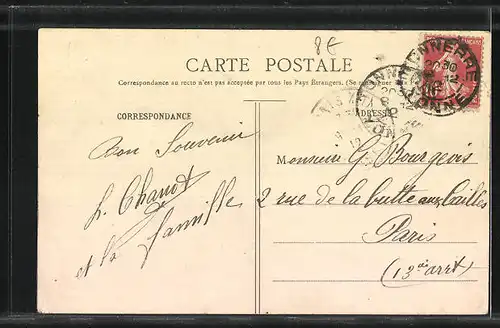 8€
CARTE POSTALE
Correspondance au recto n'est pas acceptée par tous les Pays Étrangers. (Se
CORRESPONDANCE
ADRESSE
TONNERRE
YONNE
Bon Souvenir
h. Chanot
et la famille
Monsieur G. Bourgeois
2 rue de la butte aux Cailles
Paris
(13e arrt)